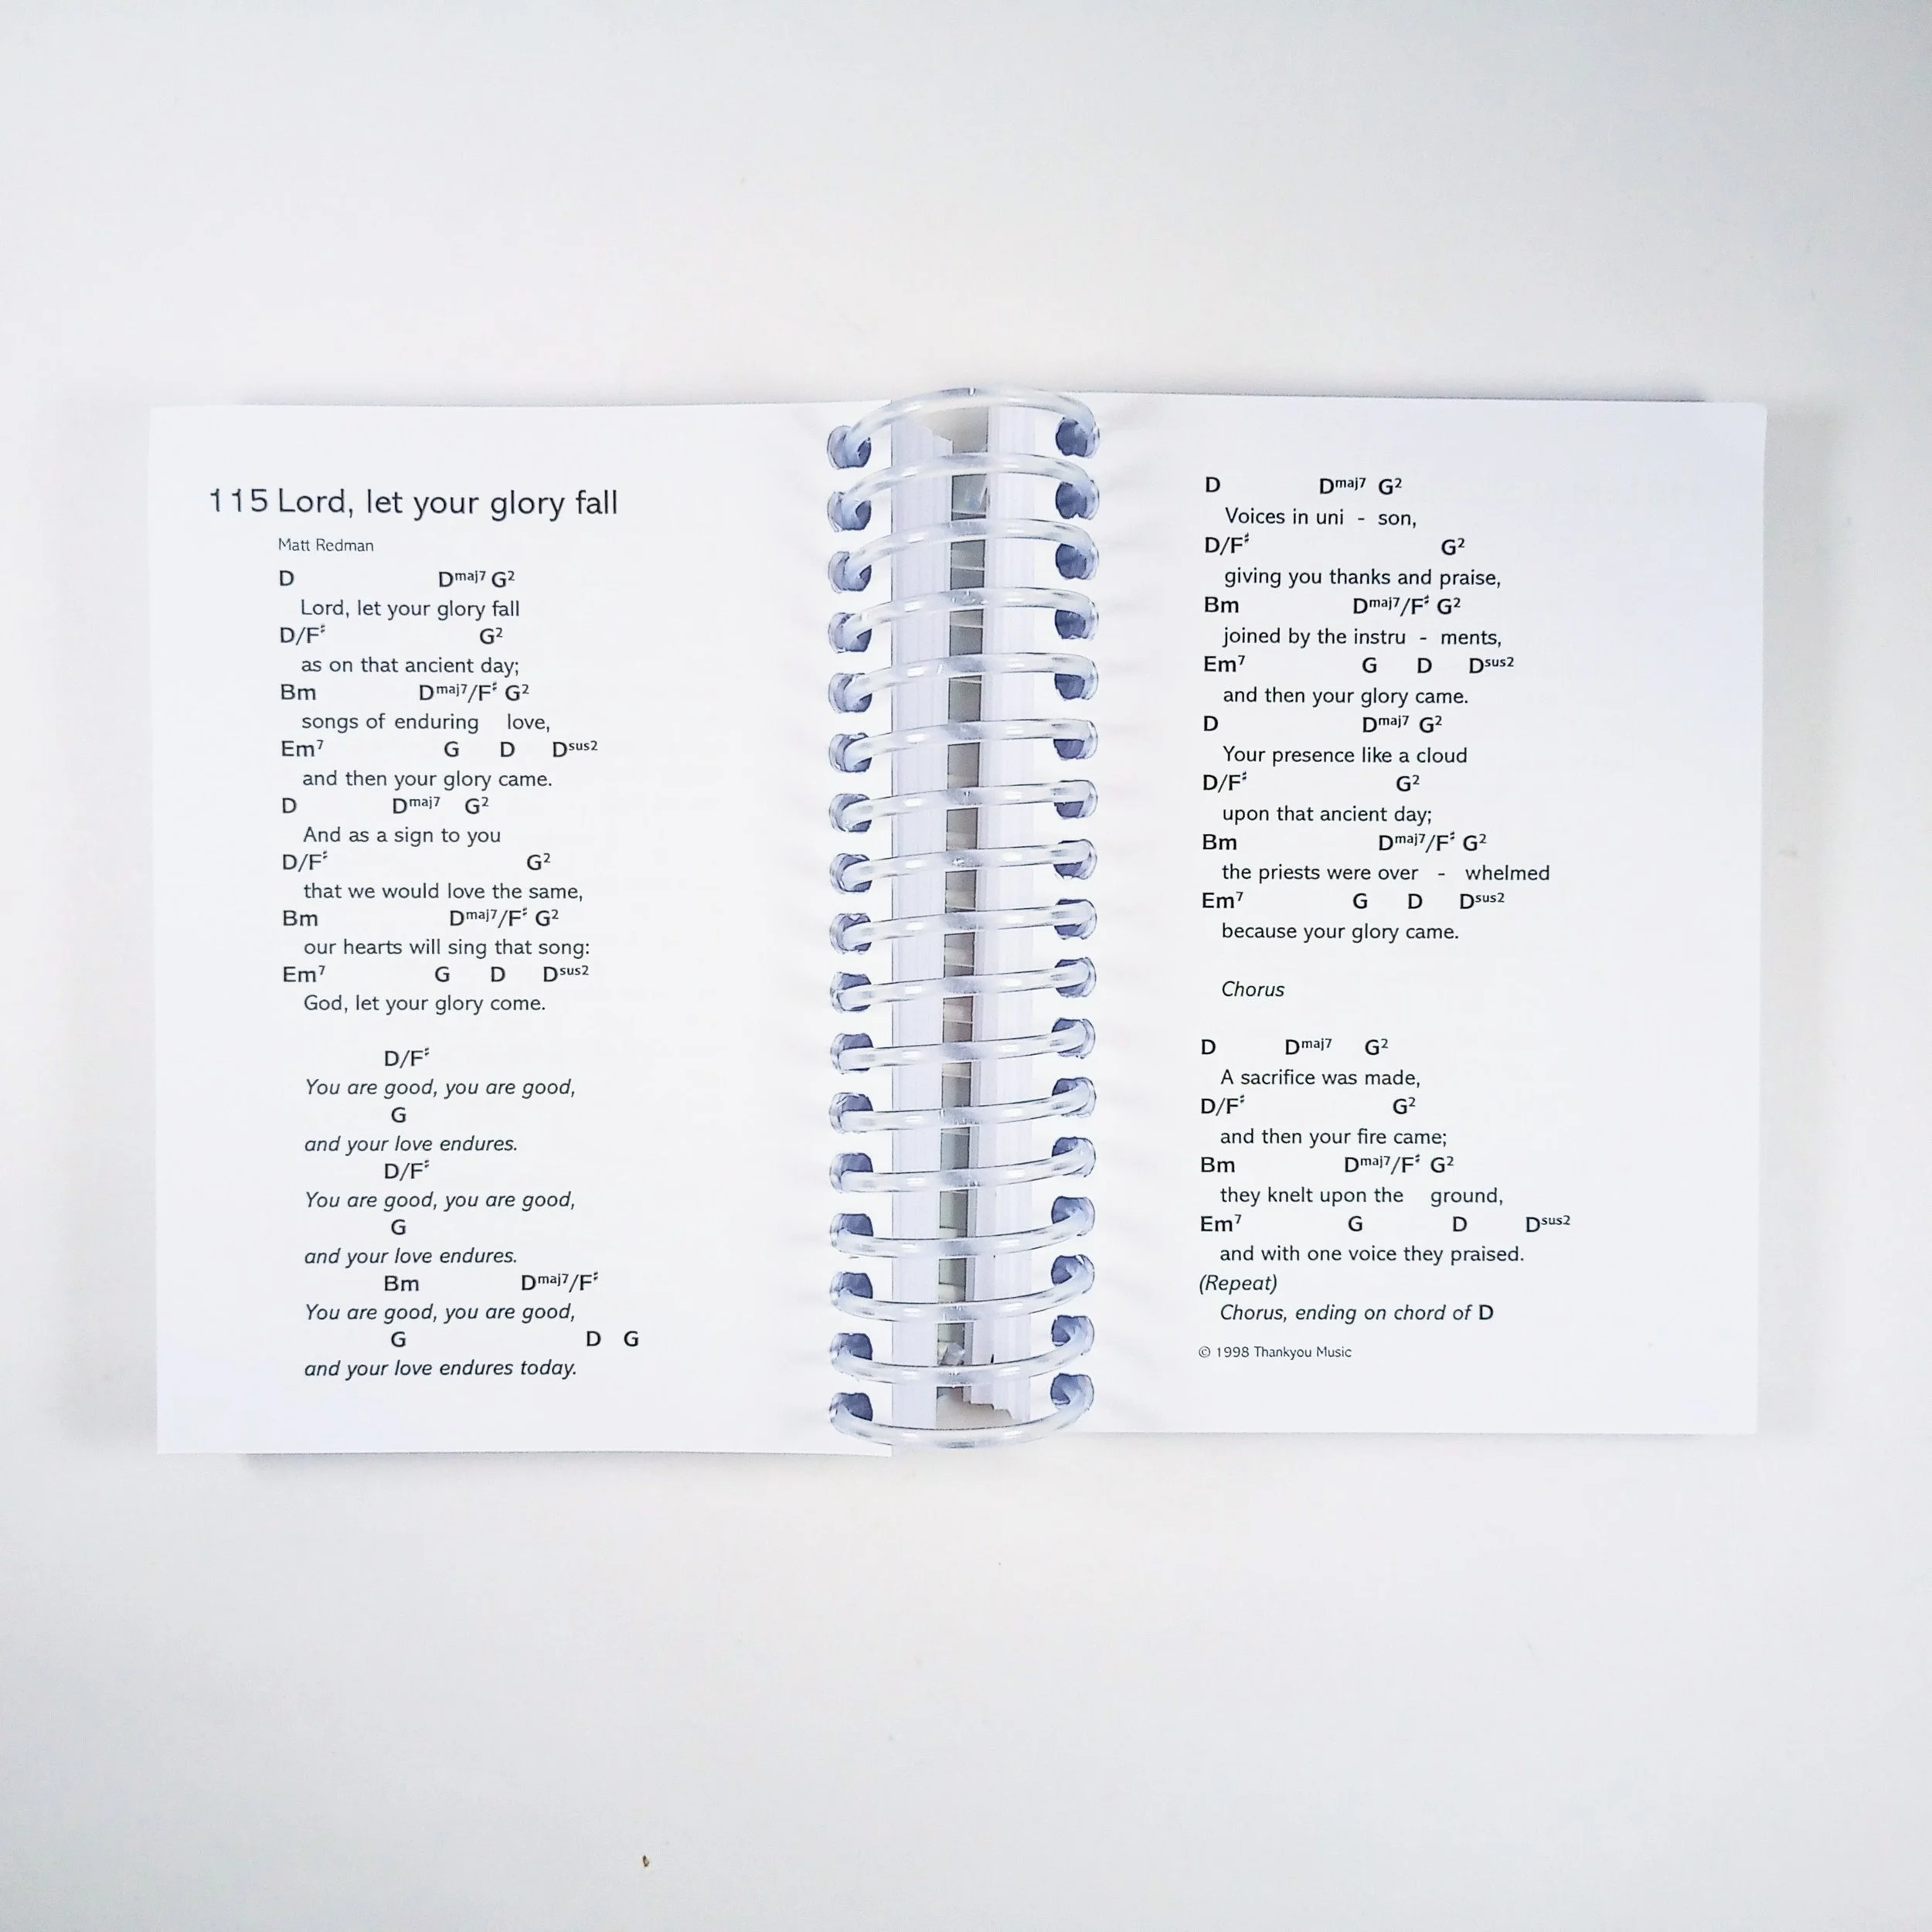 115 Lord, let your glory fall
Matt Redman
D Dmaj7 G2
Lord, let your glory fall
D/F♯ G2
as on that ancient day;
Bm Dmaj7/F♯ G2
songs of enduring love,
Em7 G D Dsus2
and then your glory came.
D Dmaj7 G2
And as a sign to you
D/F♯ G2
that we would love the same,
Bm Dmaj7/F♯ G2
our hearts will sing that song:
Em7 G D Dsus2
God, let your glory come.
D/F♯
You are good, you are good,
G
and your love endures.
D/F♯
You are good, you are good,
G
and your love endures.
Bm Dmaj7/F♯
You are good, you are good,
G D G
and your love endures today.
D Dmaj7 G2
Voices in uni - son,
D/F♯ G2
giving you thanks and praise,
Bm Dmaj7/F♯ G2
joined by the instru - ments,
Em7 G D Dsus2
and then your glory came.
D Dmaj7 G2
Your presence like a cloud
D/F♯ G2
upon that ancient day;
Bm Dmaj7/F♯ G2
the priests were over - whelmed
Em7 G D Dsus2
because your glory came.
Chorus
D Dmaj7 G2
A sacrifice was made,
D/F♯ G2
and then your fire came;
Bm Dmaj7/F♯ G2
they knelt upon the ground,
Em7 G D Dsus2
and with one voice they praised.
(Repeat)
Chorus, ending on chord of D
© 1998 Thankyou Music